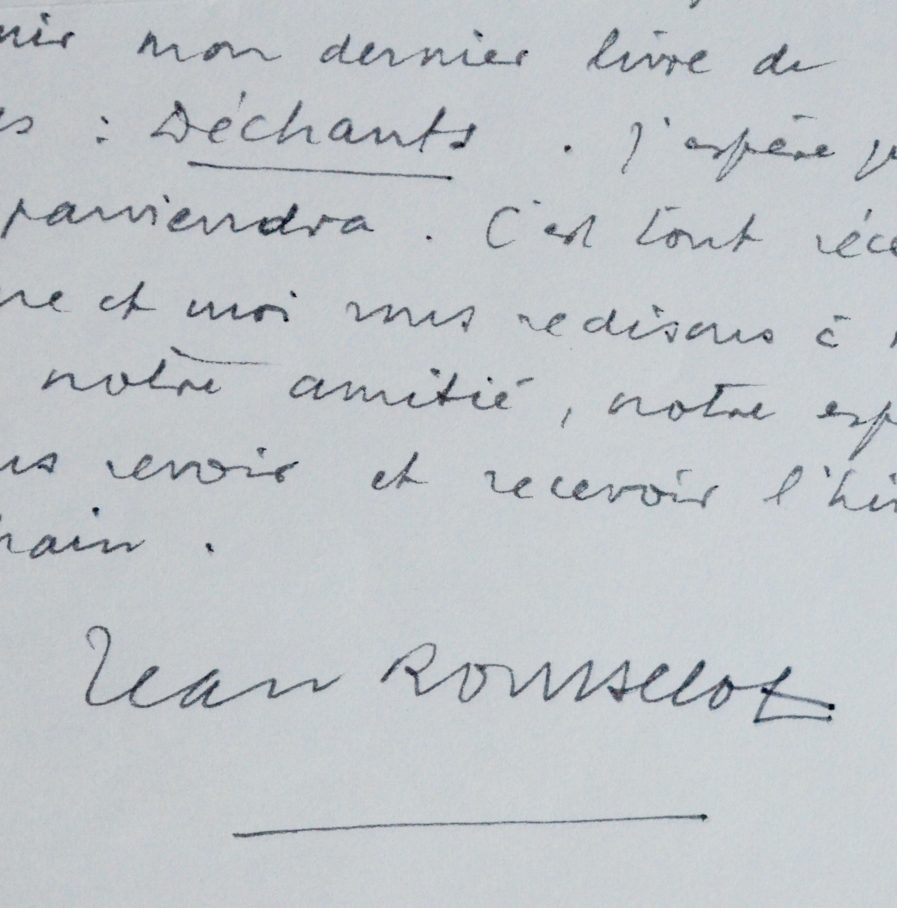 nir mon dernier livre de
es : Déchants . J'espère qu
parviendra . C'est tout réce
ne et moi vous redisons à
notre amitié, notre esp
us revoir et recevoir l'hiv
hain .
Jean Rousselot